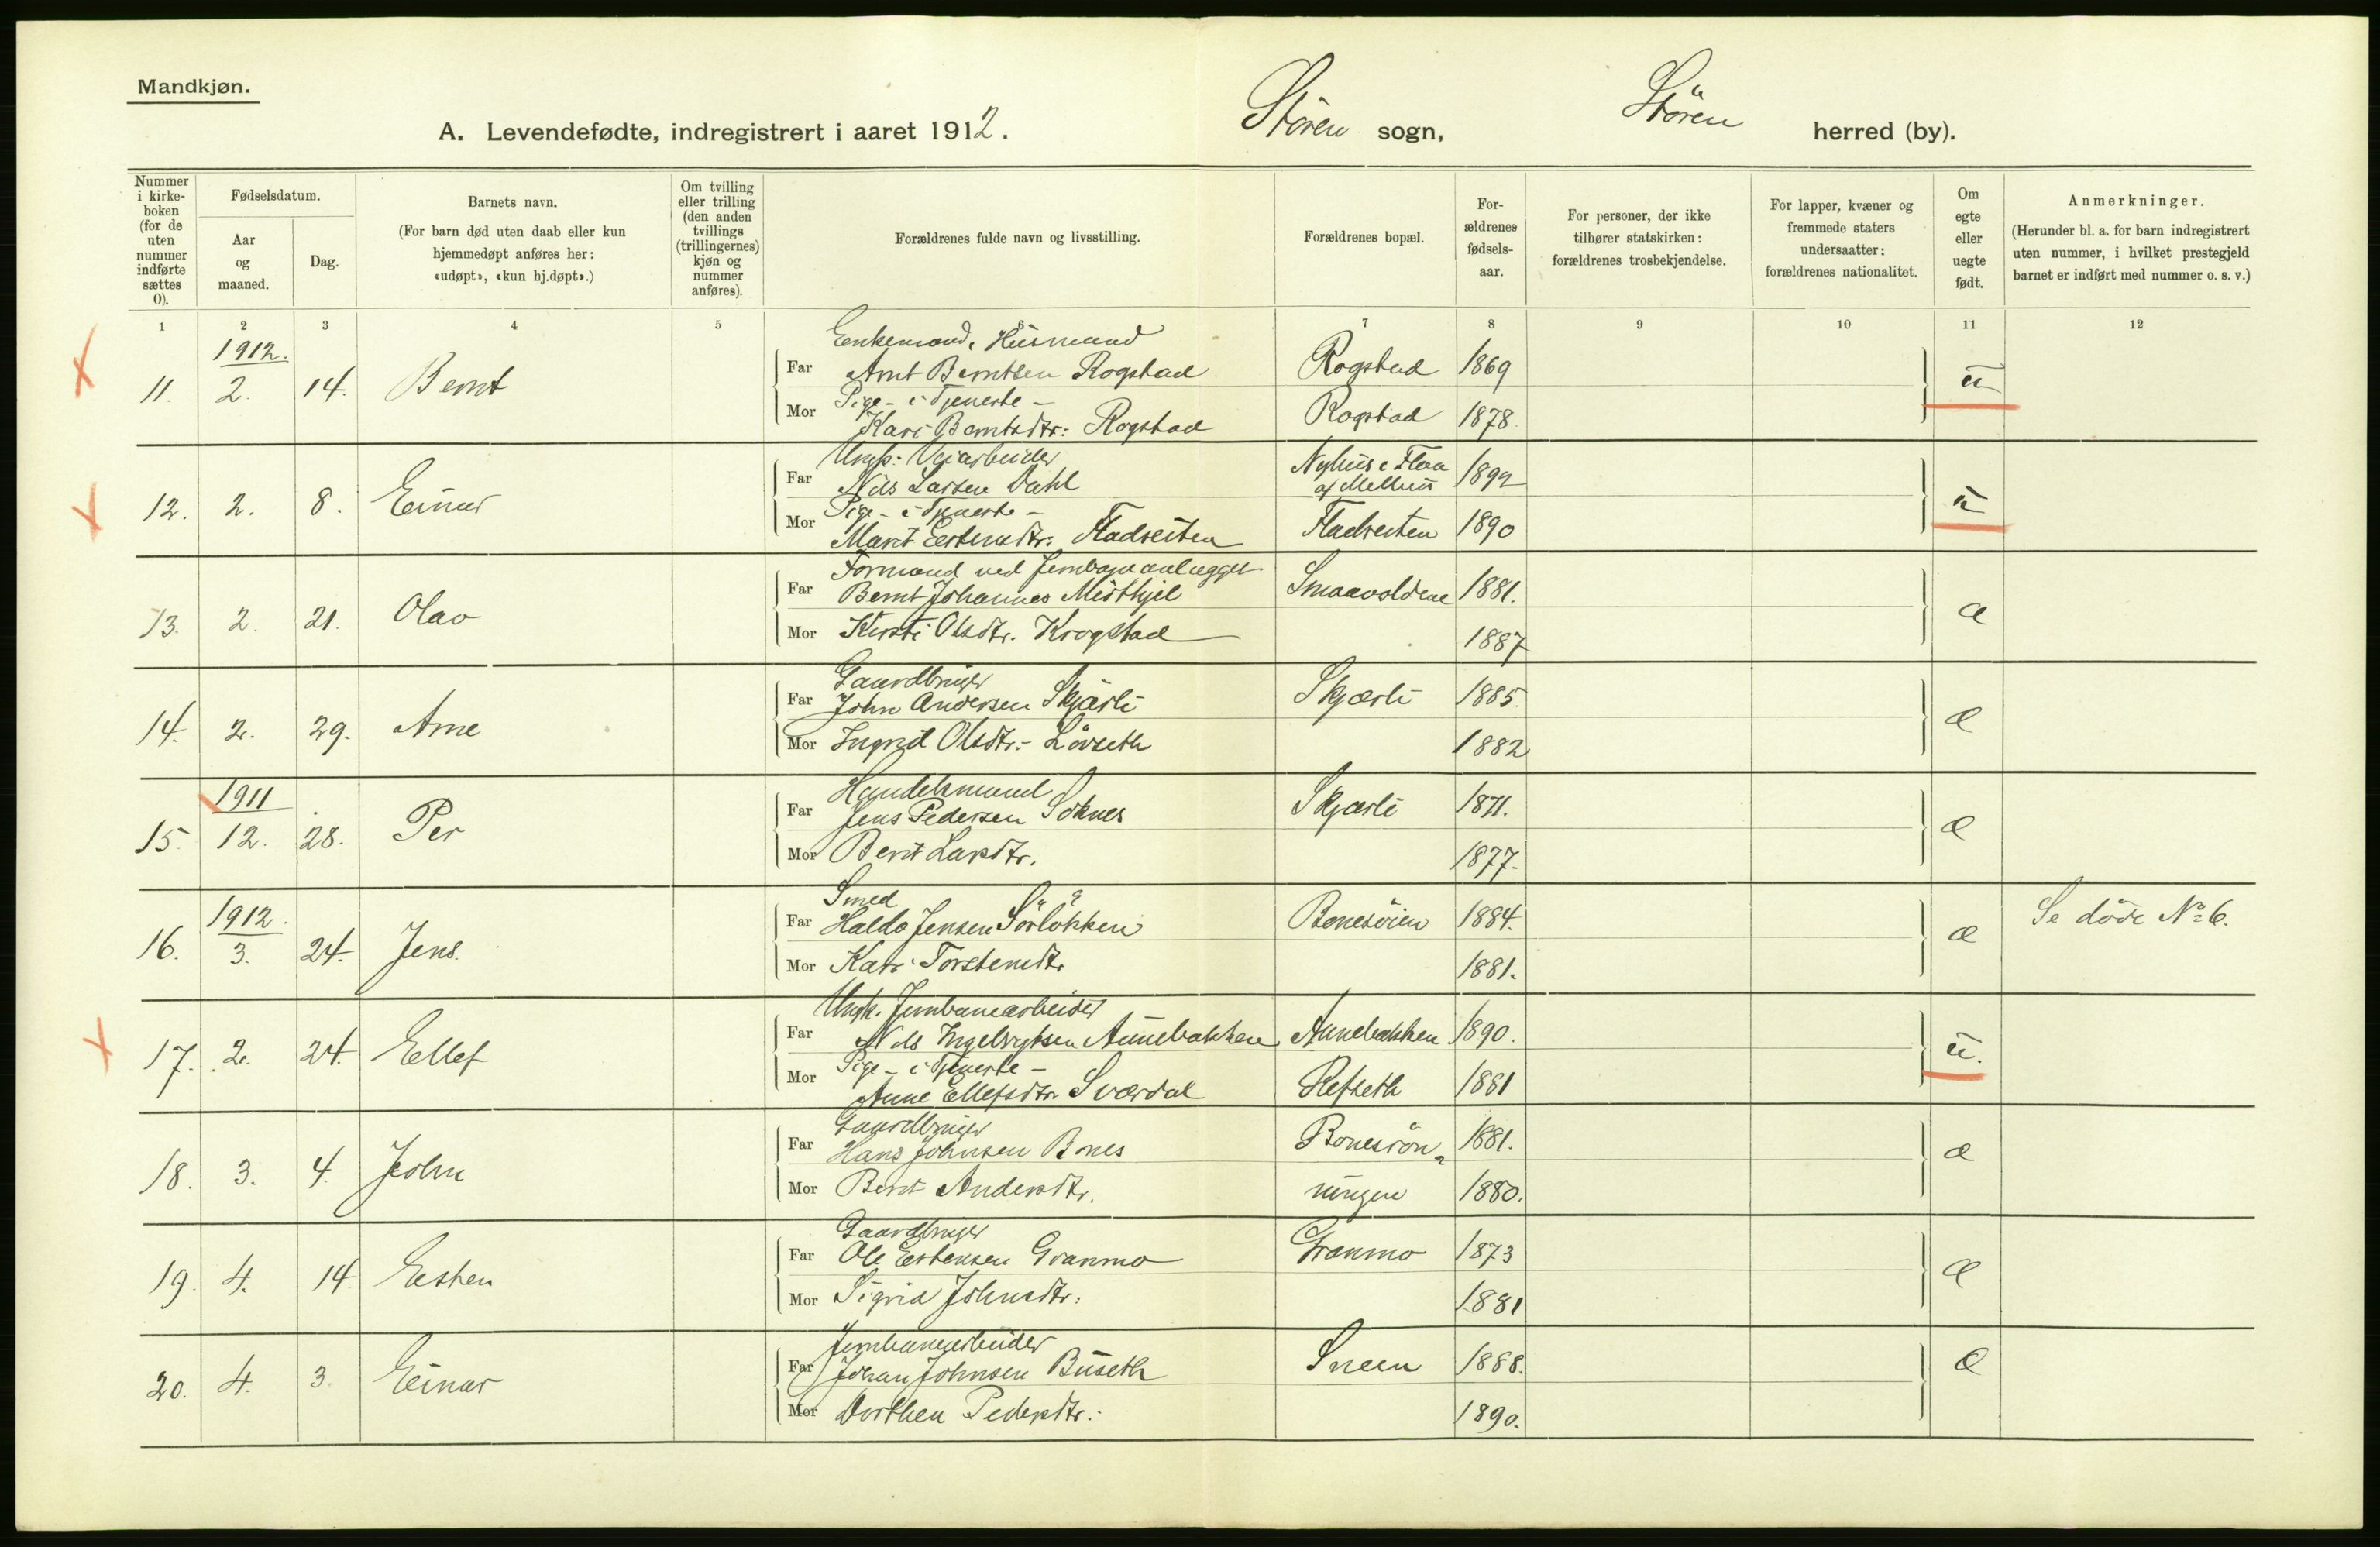 Mandkjøn.
A. Levendefødte, indregistrert i aaret 1912. Støren sogn, Støren herred (by).
Nummer i kirke-boken (for de uten nummer indførte sættes 0).
Fødselsdatum.
Aar og maaned.
Dag.
Barnets navn.
(For barn død uten daab eller kun hjemmedøpt anføres her: «udøpt», «kun hj.døpt».)
Om tvilling eller trilling (den anden tvillings (trillingernes) kjøn og nummer anføres).
Forældrenes fulde navn og livsstilling.
Forældrenes bopæl.
For-ældrenes fødsels-aar.
For personer, der ikke tilhører statskirken: forældrenes trosbekjendelse.
For lapper, kvæner og fremmede staters undersaatter: forældrenes nationalitet.
Om egte eller uegte født.
Anmerkninger.
(Herunder bl. a. for barn indregistrert uten nummer, i hvilket prestegjeld barnet er indført med nummer o. s. v.)
1 2 3 4 5 6 7 8 9 10 11 12
1912.
Enkemand, Husmand
11. 2. 14. Bernt Far Arnt Berntsen Rogstad Rogstad 1869 u
Pige - i Tjeneste -
Mor Kari Berntsdtr: Rogstad Rogstad 1878.
Ungk: Veiarbeider
12. 2. 8. Einar Far Nils Larsen Dahl Nyhus i Flaa af Melhus 1892 u
Pige - i Tjeneste -
Mor Marit Estensdtr: Fladseiten Fladseiten 1890
Formand ved Jernbaneanlægget
13. 2. 21. Olav Far Bernt Johannes Misthjel Smaavoldene 1881. æ
Mor Kirsti Olsdtr. Krogstad 1887
Gaardbruger
14. 2. 29. Arne Far John Andersen Skjærli Skjærli 1885. æ
Mor Ingrid Olsdtr:- Løvseth 1882
1911
Handelsmand
15. 12. 28. Per Far Jens Pedersen Soknes Skjærli 1871. æ
Mor Berit Larsdtr. 1877.
1912.
Smed
16. 3. 24. Jens. Far Haldo Jensen Sørløkken Bonesøien 1884. æ Se døde No 6.
Mor Kari Torstensdtr 1881.
Ungk. Jernbanearbeider
17. 2. 24. Ellef Far Nils Ingebrigtsen Aunebakken Aunebakken 1890. u.
Pige - i Tjeneste -
Mor Anne Ellefsdtr Sværdal Refseth 1881
Gaardbruger
18. 3. 4. John Far Hans Johnsen Bones Bonesrøn- 1881. æ
Mor Berit Andersdtr. ningen 1880.
Gaardbruger
19. 4. 14. Eesten Far Ole Estensen Granmo Granmo 1873 æ
Mor Sigrid Johnsdtr: 1881
Jernbanearbeider
20. 4. 3. Einar Far Johan Johnsen Buseth Sneen 1888. æ
Mor Dorthea Pedersdtr. 1890.